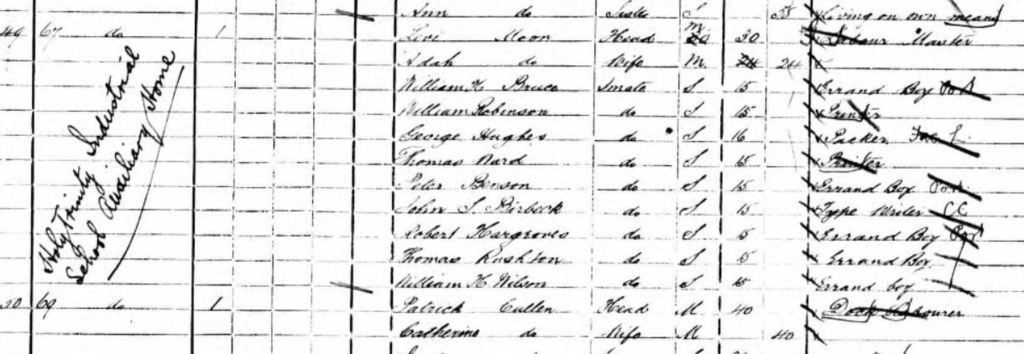 Ann do Sister S 55 Living on own means
49 67 do 1 Levi Moon Head M 30 Labour Master
Adah do Wife M 24
William H Bruce Inmate S 15 Errand Boy
William Robinson do S 15 Printer
George Hughes do S 16 Packer
Thomas Ward do S 15 Printer
Peter Benson do S 15 Errand Boy
John S. Birbeck do S 15 Type Writer CC
Robert Hargroves do S 15 Errand Boy
Thomas Rushton do S 15 Errand Boy
William H Wilson do S 15 Errand boy
Holy Trinity Industrial
School Auxiliary Home
50 69 do 1 Patrick Cullen Head M 40 Dock Labourer
Catherine do Wife M 40